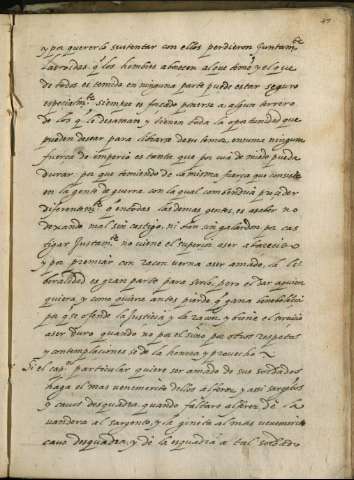 y por quererlo sustentar con ellos perdieron juntam.te
las vidas, q̃ los hombres aborrecen al que temē y el que
de todos es temido en ninguna parte puede estar seguro
especialm.te siempre es forçado ponerse a algun terrero
de los q̃ le desaman y tienen toda la oportunidad que
pueden desear para librarse deste tema, en suma ninguna
fuerça de imperio es tanta que por via de miedo pueda
durar, por que temiendo de la misma fuerça que consiste
en la gente de guerra con la qual combendria proceder
diferentem.te q̃ con todas las demas gentes, es a saber no
dexando mal sin castigo, ni bien sin galardon por cas
tigar justam.te no viene el superior a ser aborrecido
y por premiar con raçon verna a ser amado, la li
beralidad es gran parte para serlo, pero el dar a quien
quiera, y como quiera antes pierde q̃ gana
por q̃ se ofende la justicia y la raçon, y viene el
a ser duro quando no por el sino por otros respetos
y contemplaciones se da la honrra y provecho
Si el cap.n particular quiere ser amado de sus soldados
haga el mas venemerito dellos alferez, y assi sargētos
y cavos desquadra, quando faltare alferez dē la
vandera al sargento, y la gineta al mas venemerito
cavo desquadra, y dē la esquadra a tal soldado